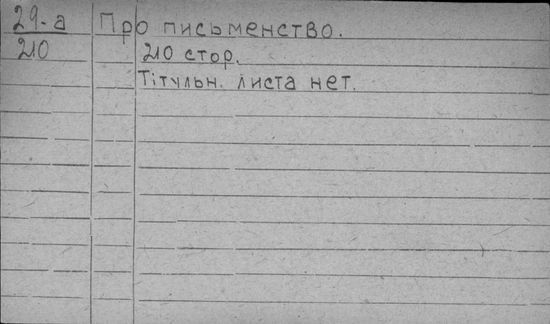 29-а Про письменство.
210 210 стор.
Тітульн. листа нет.